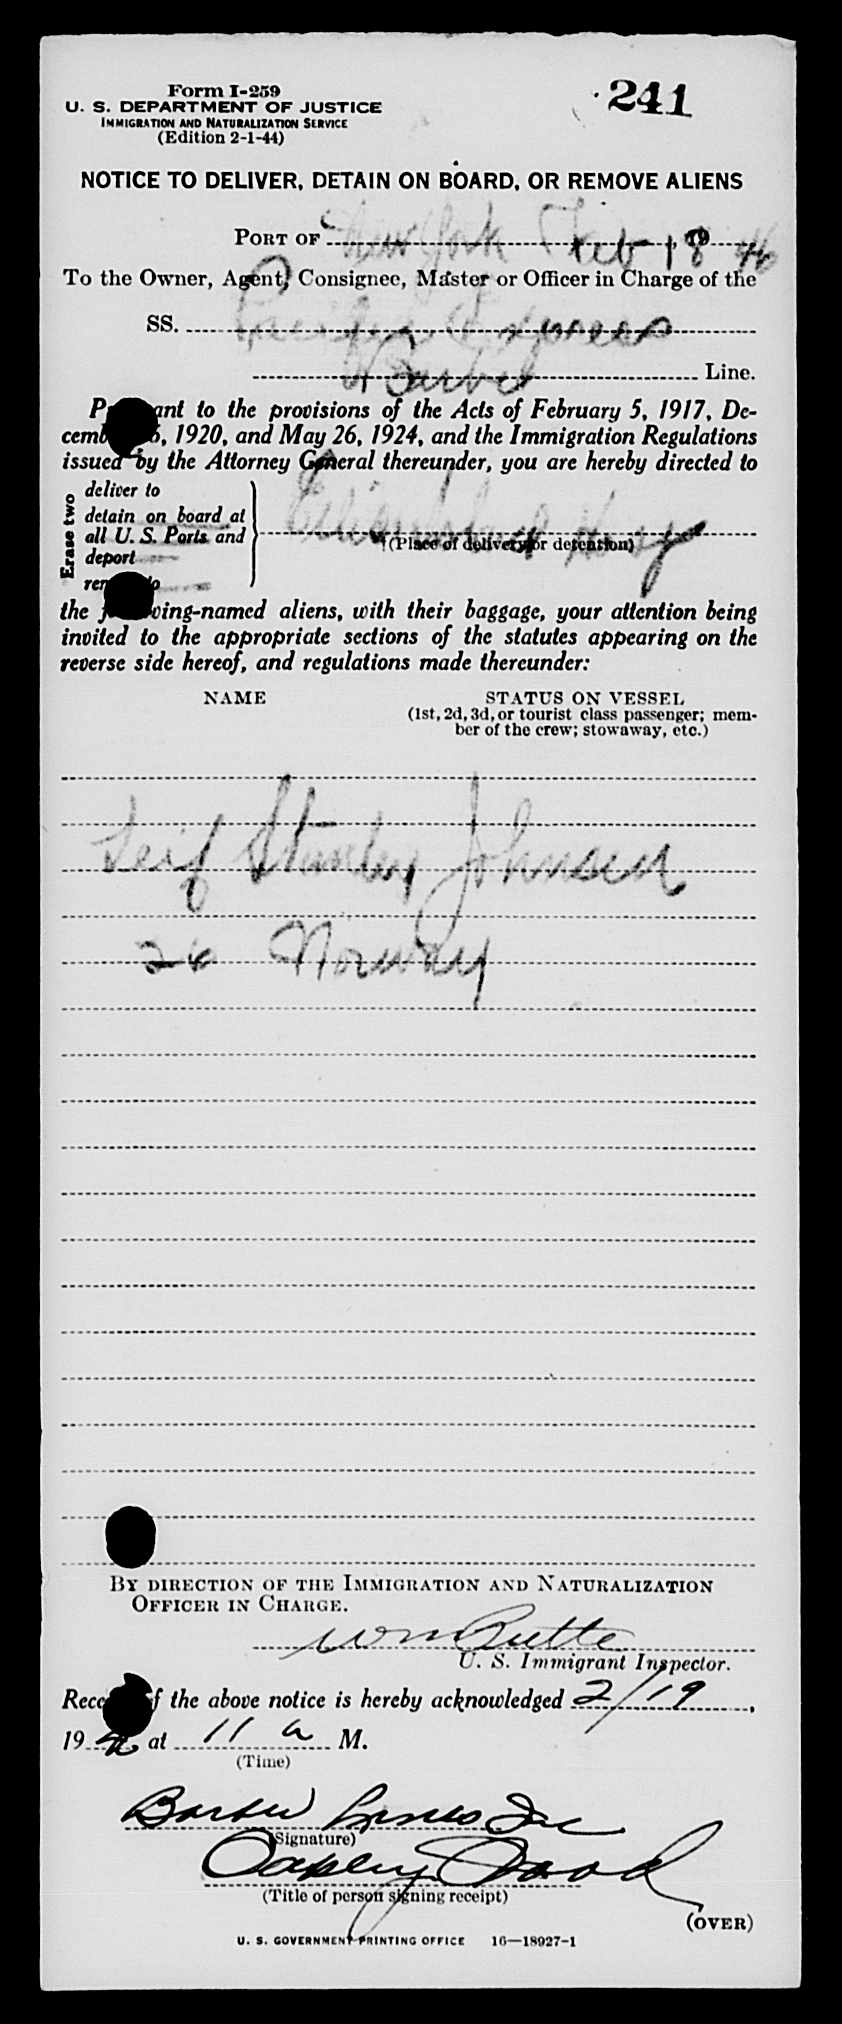 Form I-259
U. S. DEPARTMENT OF JUSTICE
IMMIGRATION AND NATURALIZATION SERVICE
(Edition 2-1-44)
241
NOTICE TO DELIVER, DETAIN ON BOARD, OR REMOVE ALIENS
PORT OF New York Feb 18 19 46
To the Owner, Agent, Consignee, Master or Officer in Charge of the
SS. Express
Barber Line.
ant to the provisions of the Acts of February 5, 1917, De-
cemb 6, 1920, and May 26, 1924, and the Immigration Regulations
issued by the Attorney General thereunder, you are hereby directed to
Erase two
deliver to
detain on board at
all U. S. Ports and
deport
(Place of delivery or detention)
the ing-named aliens, with their baggage, your attention being
invited to the appropriate sections of the statutes appearing on the
reverse side hereof, and regulations made thereunder:
NAME STATUS ON VESSEL
(1st, 2d, 3d, or tourist class passenger; mem-
ber of the crew; stowaway, etc.)
Leif Stanley Johnsen
26 Norway
BY DIRECTION OF THE IMMIGRATION AND NATURALIZATION
OFFICER IN CHARGE.
Wm Butte
U. S. Immigrant Inspector.
Rece f the above notice is hereby acknowledged 2/19,
19 46 at 11 a M.
(Time)
Barber Lines Inc
(Signature)
Oakley Wood
(Title of person signing receipt)
(OVER)
U. S. GOVERNMENT PRINTING OFFICE 16—18927-1